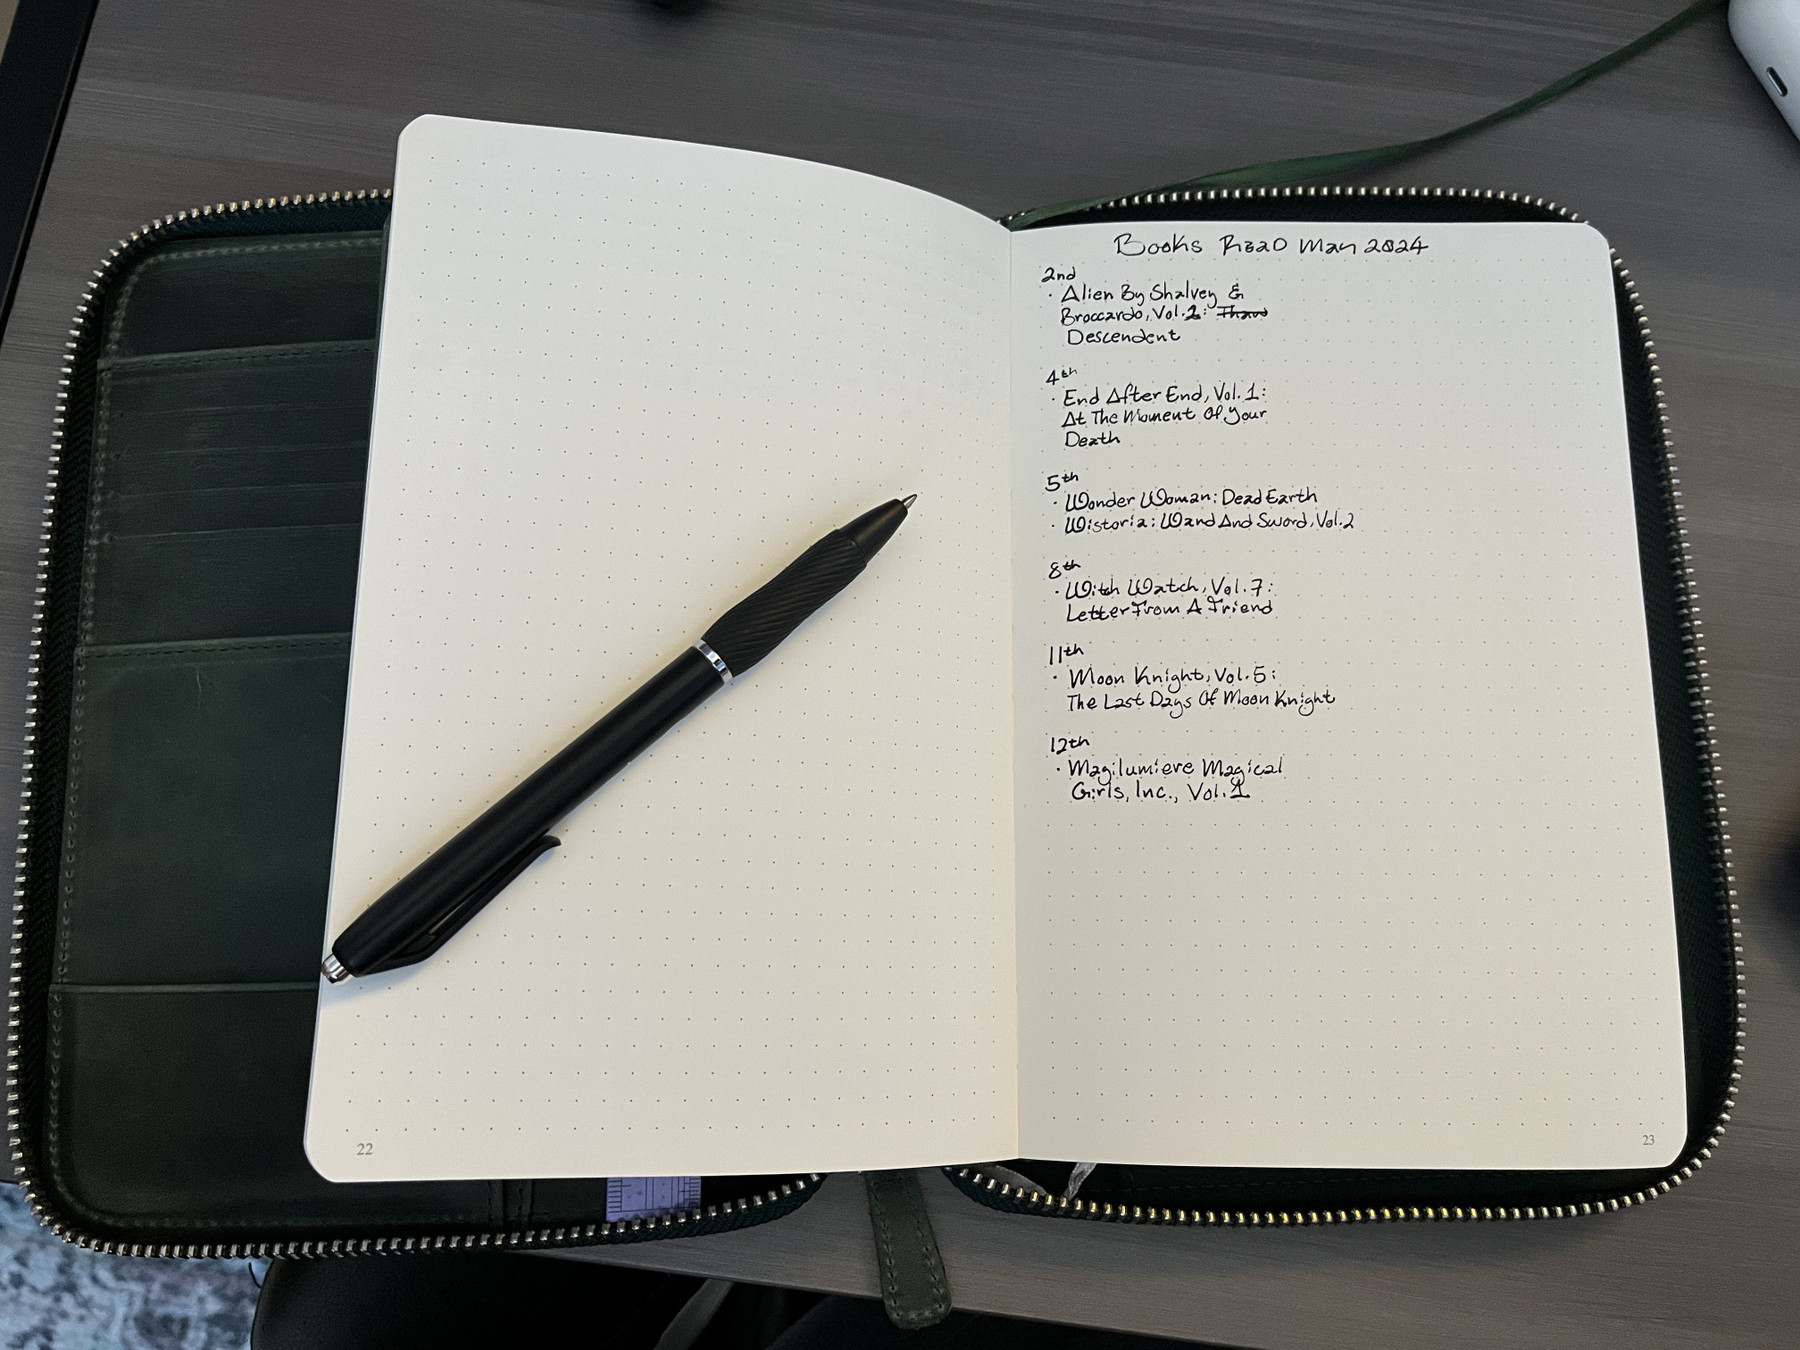 Books Read May 2024
2nd
· Alien By Shalvey &
Broccardo, Vol. 2:
Descendent
4th
· End After End, Vol. 1:
At The Moment Of Your
Death
5th
· Wonder Woman: Dead Earth
· Wistoria: Wand And Sword, Vol. 2
8th
· Witch Watch, Vol. 7:
Letter From A Friend
11th
· Moon Knight, Vol. 5:
The Last Days Of Moon Knight
12th
· Magilumiere Magical
Girls, Inc., Vol. 1
22
23